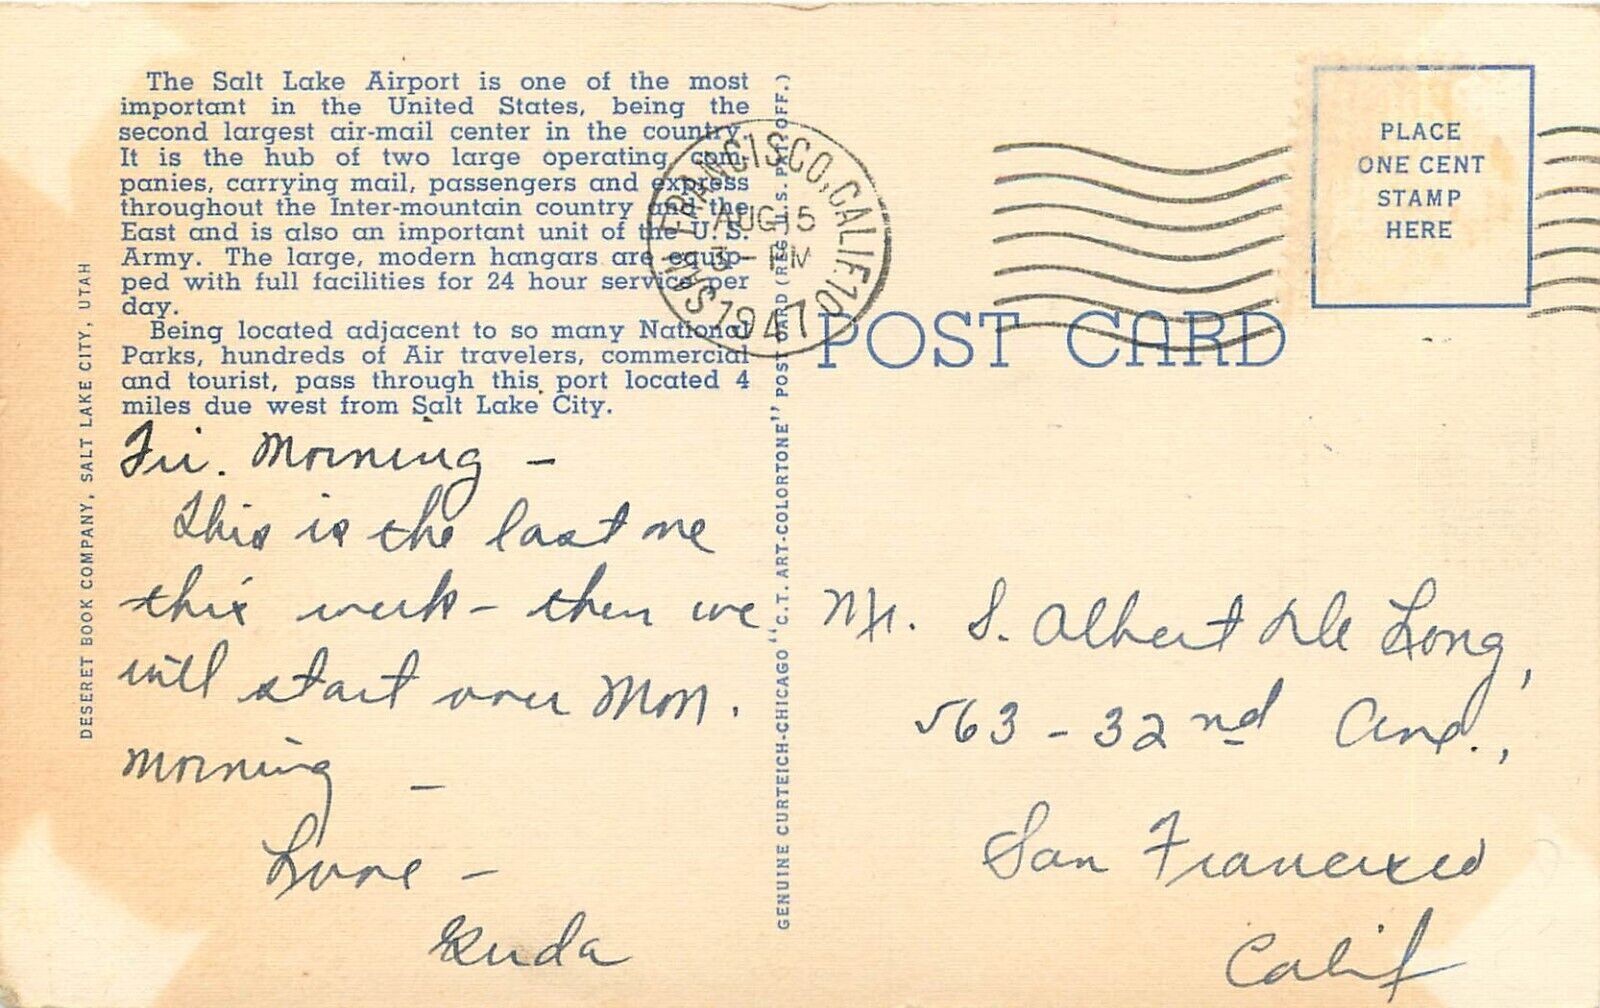 The Salt Lake Airport is one of the most
important in the United States, being the
second largest air-mail center in the country.
It is the hub of two large operating com-
panies, carrying mail, passengers and express
throughout the Inter-mountain country and the
East and is also an important unit of the U. S.
Army. The large, modern hangars are equip-
ped with full facilities for 24 hour service per
day.
Being located adjacent to so many National
Parks, hundreds of Air travelers, commercial
and tourist, pass through this port located 4
miles due west from Salt Lake City.
Fri. Morning -
This is the last one
this week - then we
will start over Mon.
morning -
Love -
DESERET BOOK COMPANY, SALT LAKE CITY, UTAH
GENUINE CURTEICH-CHICAGO "C. T. ART-COLORTONE" POST CARD (REG. U. S. PAT. OFF.)
SAN FRANCISCO, CALIF. 10
AUG 15
3 - PM
1947
PLACE
ONE CENT
STAMP
HERE
POST CARD
Mr. S. Albert De Long,
563 - 32nd Ave.,
San Francisco
Calif